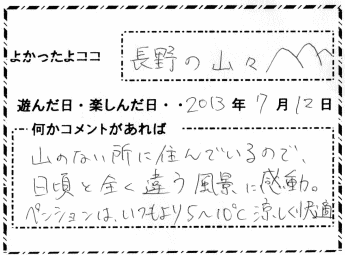 よかったよココ 長野の山々
遊んだ日・楽しんだ日・・2013年7月12日
何かコメントがあれば
山のない所に住んでいるので、
日頃と全く違う風景に感動。
ペンションは、いつもより5~10℃涼しく快適